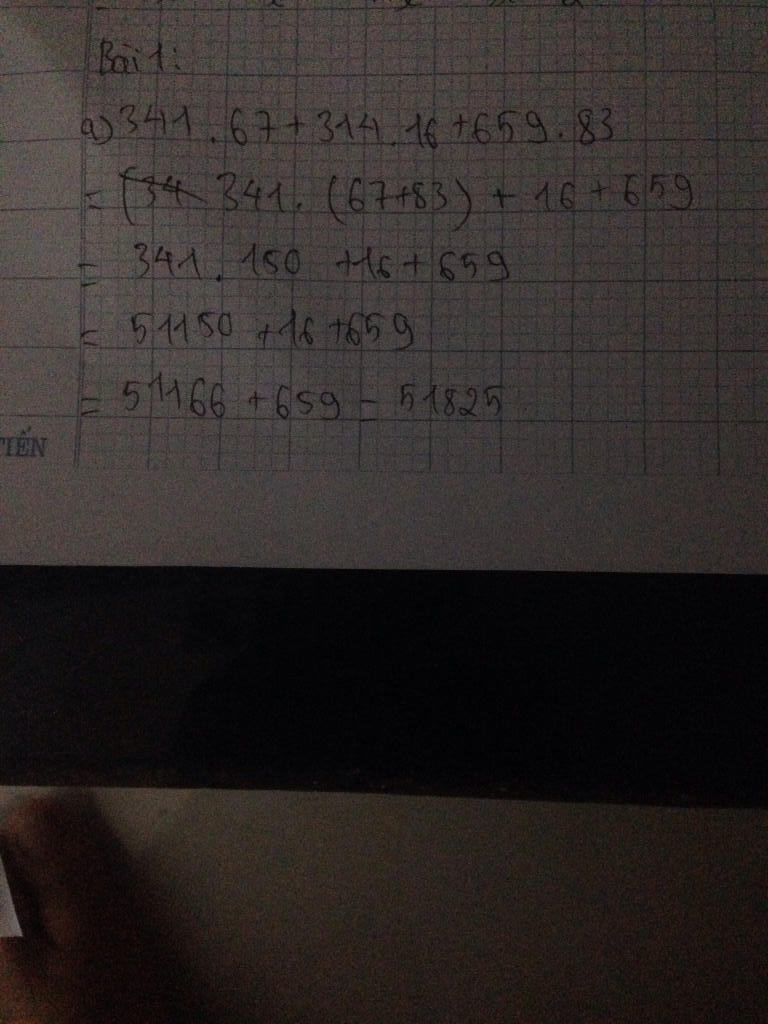 Bài 1:
a) 341 . 67 + 314 . 16 + 659 . 83
= 341 . (67+83) + 16 + 659
= 341 . 150 + 16 + 659
= 51150 + 16 + 659
= 51166 + 659 = 51825
TIẾN